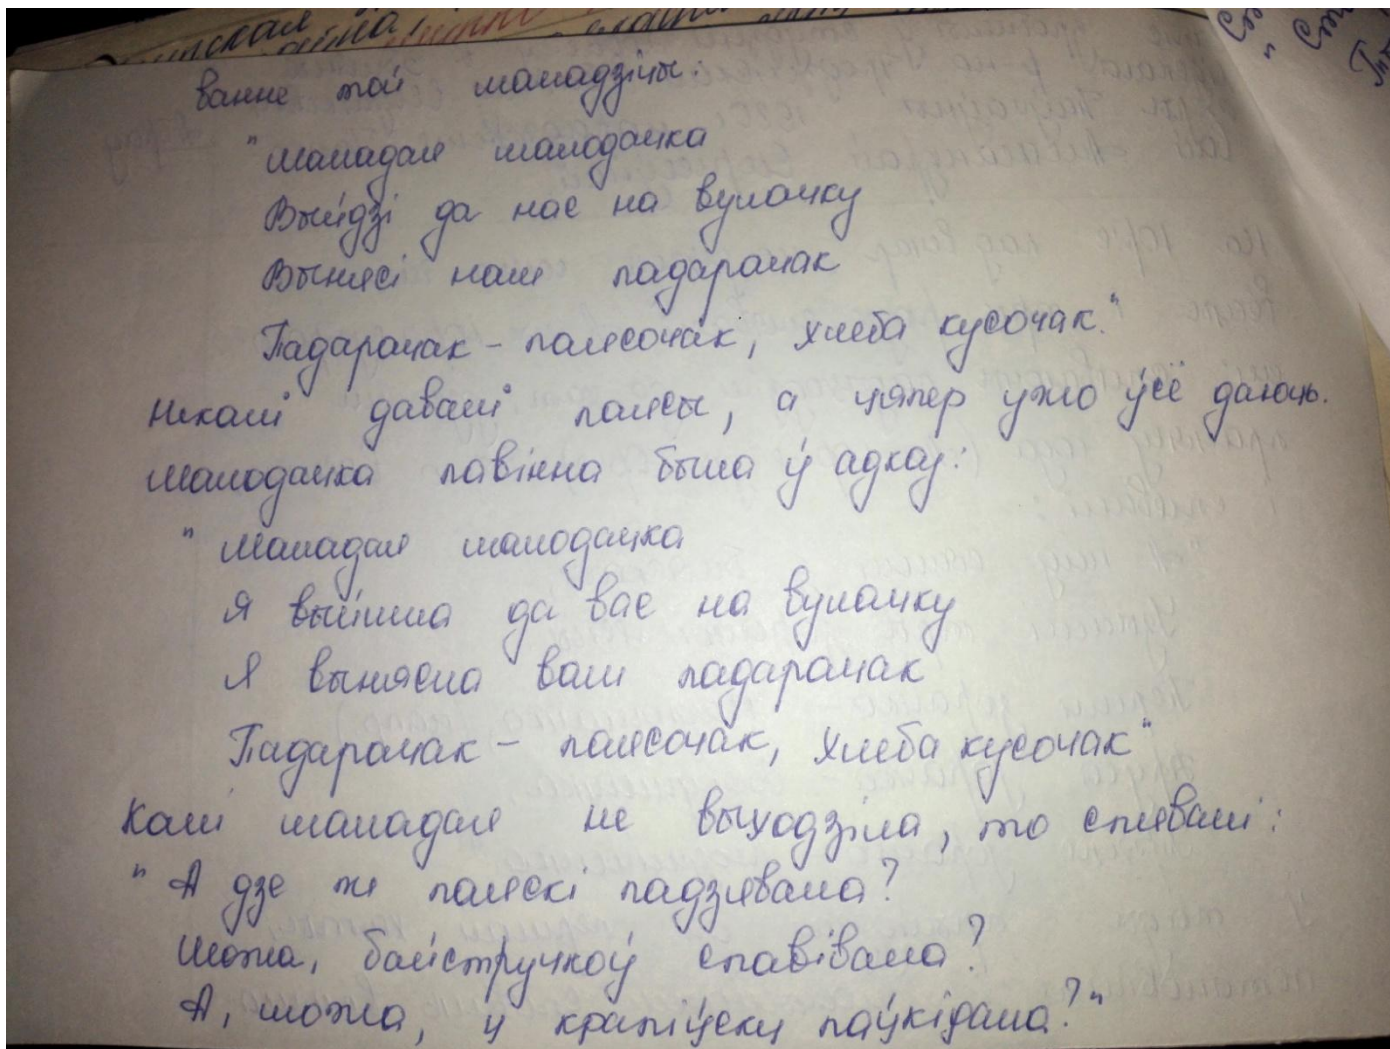 ванне той маладзіцы:
"Маладая малодачка
Выйдзі да нас на вулачку
Вынясі нам падарачак
Падарачак - паясочак, хлеба кусочак."
Некалі давалі паясы, а цяпер ужо ўсё даюць.
Малодачка павінна была ў адказ:
"Маладая малодачка
Я выйшла да вас на вулачку
Я вынясла вам падарачак
Падарачак - паясочак, хлеба кусочак"
Калі маладая не выходзіла, то спявалі:
"А дзе ж паяскі падзявала?
Можа, байстручкоў спавівала?
А, можа, у крапіўску паўкідала?"